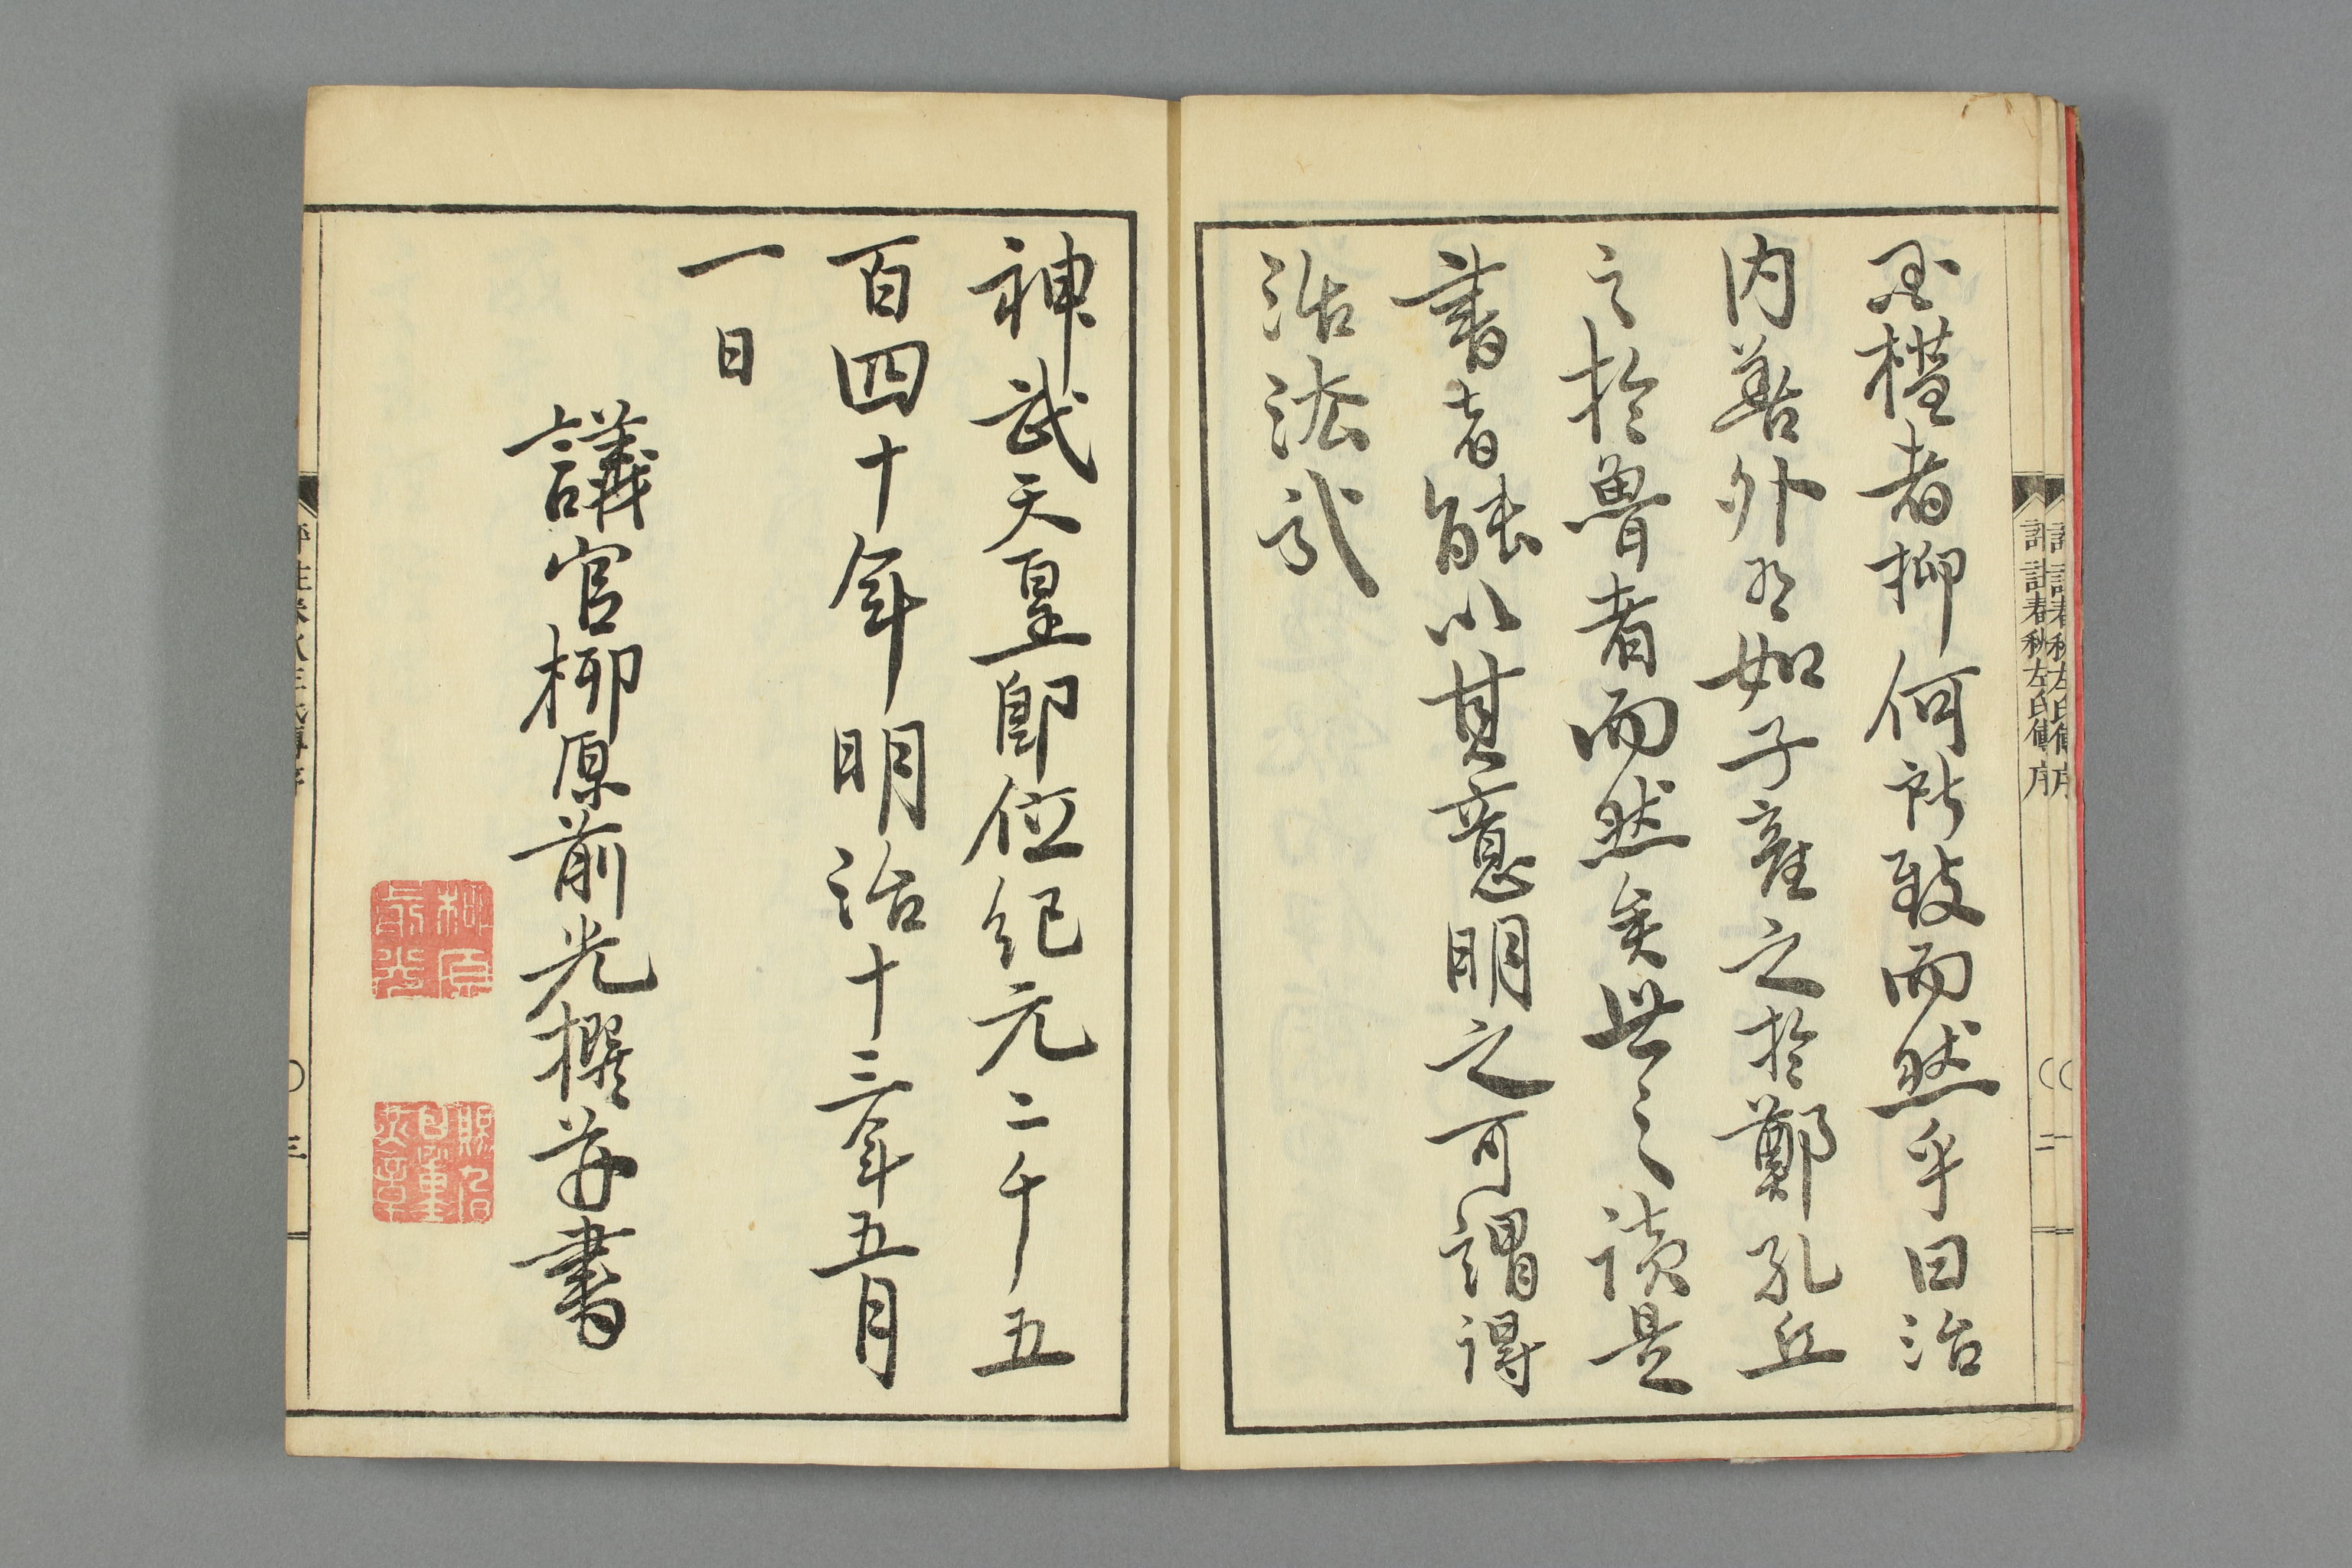 評註春秋左氏傳序 〇 二
国權者抑何所致而然乎曰治
内善外有如子產之於鄭孔丘
之於魯者而然矣世之讀是
書者能以其意明之可謂得
活法哉
神武天皇即位紀元二千五
百四十年明治十三年五月
一日
議官柳原前光撰并書
柳原前光
三